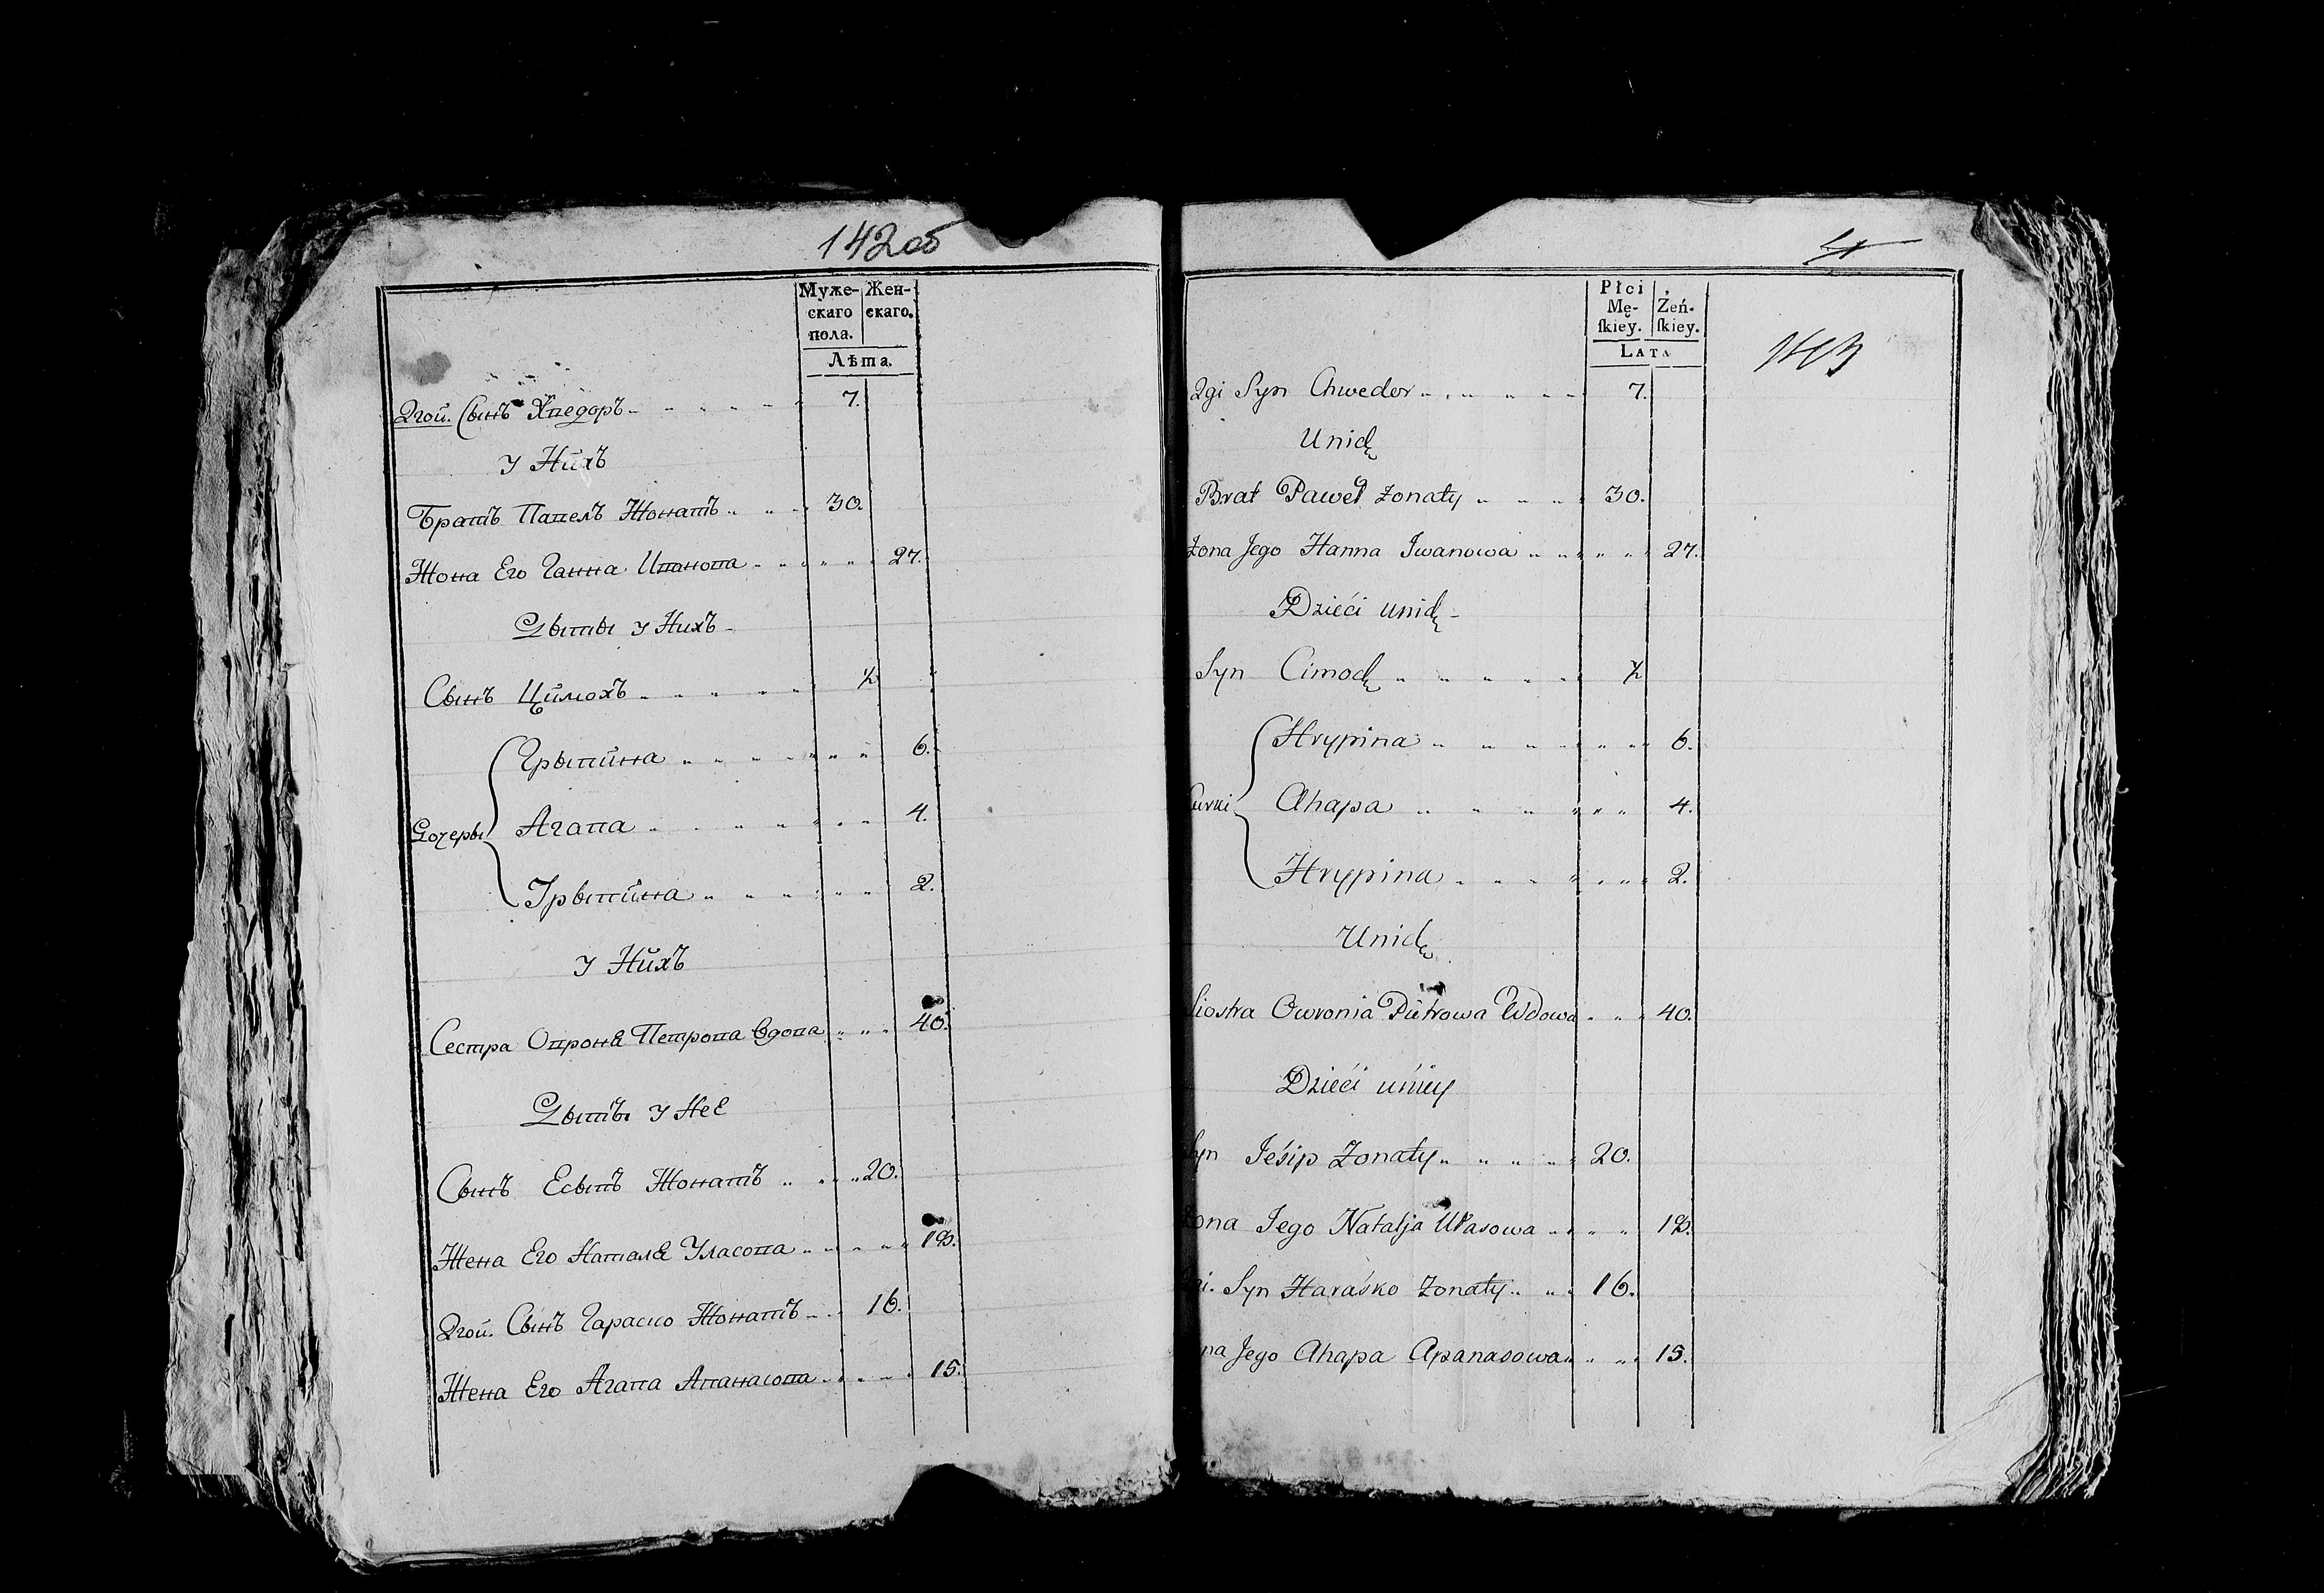 142 об
Муже-
скаго
пола.
Жен-
скаго.
Лѣта.
2гой. Сынъ Хпедоръ 7.
У Нихъ
Братъ Папелъ Жонатъ 30.
Жона Его Ганна Ипанопа 27.
Дыты у Нихъ
Сынъ Цимохъ ½
Дочеры
Грыпина 6.
Агапа 4.
Грыпина 2.
У Нихъ
Сестра Опроня Петропа Вдопа 40.
Дыты у Нее
Сынъ Есыпъ Жонатъ 20.
Жена Его Наталя Уласопа 18.
2гой. Сынъ Гараско Жонатъ 16.
Жена Его Агапа Апанасопа 15.
4
143
Płci
Mę-
ſkiey.
Żeń-
ſkiey.
LATA
2gi Syn Chwedor 7.
Unich
Brat Paweł żonaty 30.
Żona Jego Hanna Iwanowa 27.
Dzieći unich
Syn Cimoch ½
Curki
Hrypina 6.
Ahapa 4.
Hrypina 2.
Unich
Siostra Owronia Pietrowa Wdowa 40.
Dzieći uniey
Syn Jeśip Żonaty 20.
Żona Jego Natalja Ułasowa 18.
gi. Syn Haraśko Żonaty 16.
na Jego Ahapa Apanasowa 15.